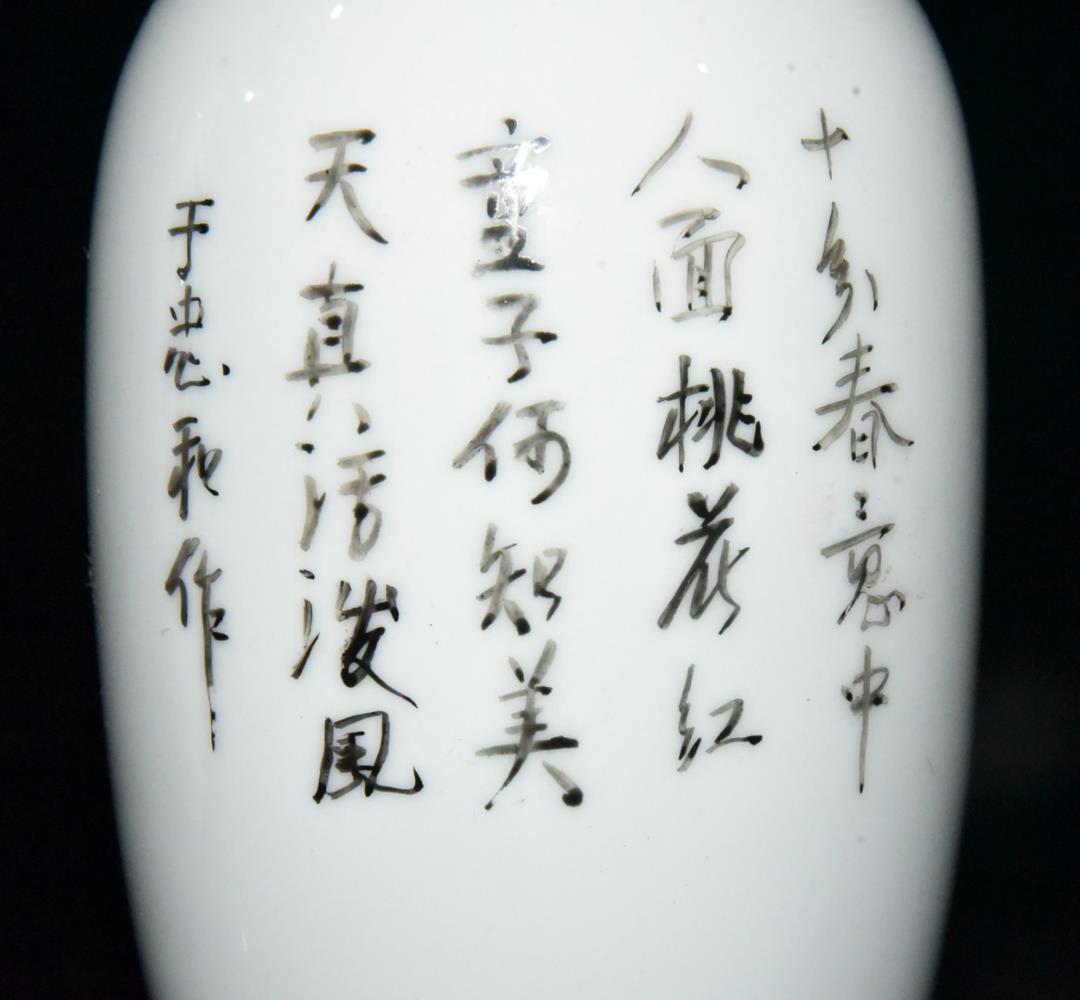 十分春意中
人面桃花红
童子何知美
天真活泼風
于忠和作